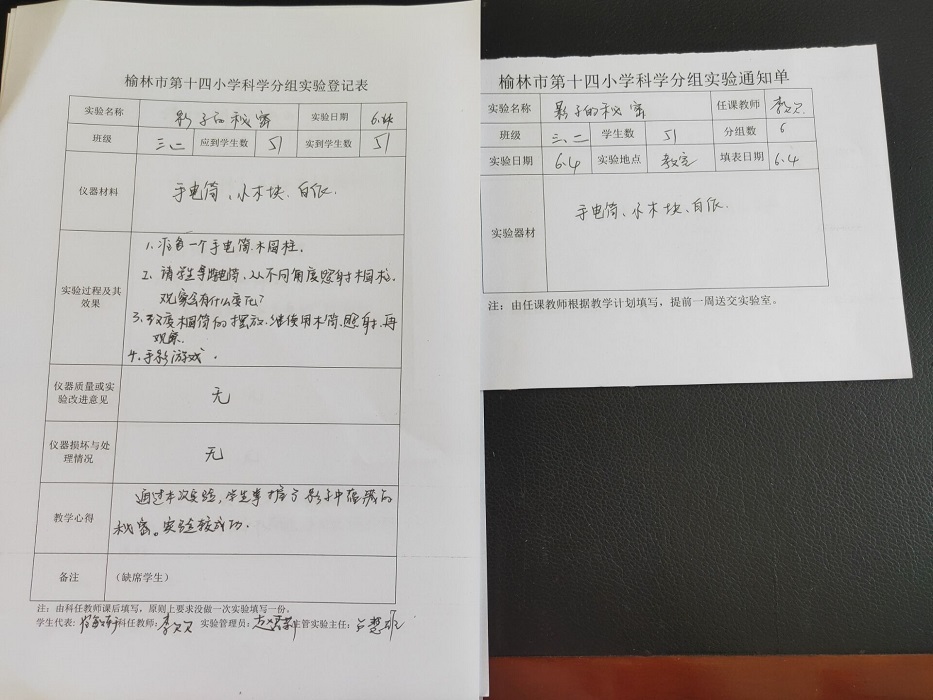 榆林市第十四小学科学分组实验登记表
实验名称 影子的秘密 实验日期 6.4
班级 三、二 应到学生数 51 实到学生数 51
仪器材料 手电筒、小木块、白纸.
实验过程及其效果
1、准备一个手电筒、木圆柱.
2、请学生手电筒、从不同角度照射木圆柱.
观察会有什么变化？
3、改变木圆筒的摆放、继续用木筒照射、再
观察.
4、手影游戏.
仪器质量或实验改进意见 无
仪器损坏与处理情况 无
教学心得
通过本次实验，学生掌握了影子中蕴藏的
秘密。实验较成功.
备注 （缺席学生）
注：由科任教师课后填写，原则上要求没做一次实验填写一份。
学生代表： 科任教师：李 实验管理员：赵 主管实验主任：
榆林市第十四小学科学分组实验通知单
实验名称 影子的秘密 任课教师 李
班级 三、二 学生数 51 分组数 6
实验日期 6.4 实验地点 教室 填表日期 6.4
实验器材 手电筒、小木块、白纸.
注：由任课教师根据教学计划填写，提前一周送交实验室。